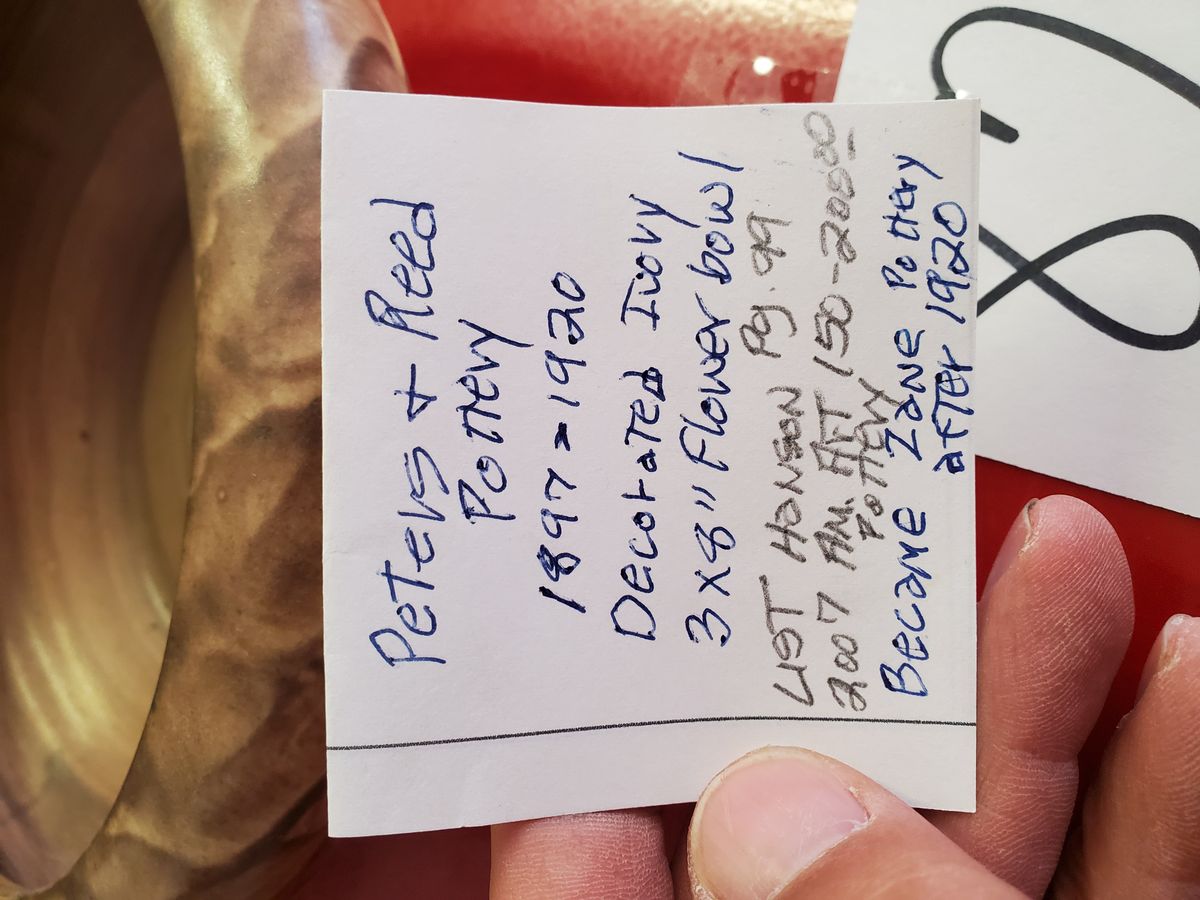 Peters + Reed
Pottery
1897-1920
Decorated Ivory
3 x 8" Flower bowl
LIST HANSON Pg. 99
2007 AM. ART 150-200.00
POTTERY
Became Zane Pottery
after 1920
8